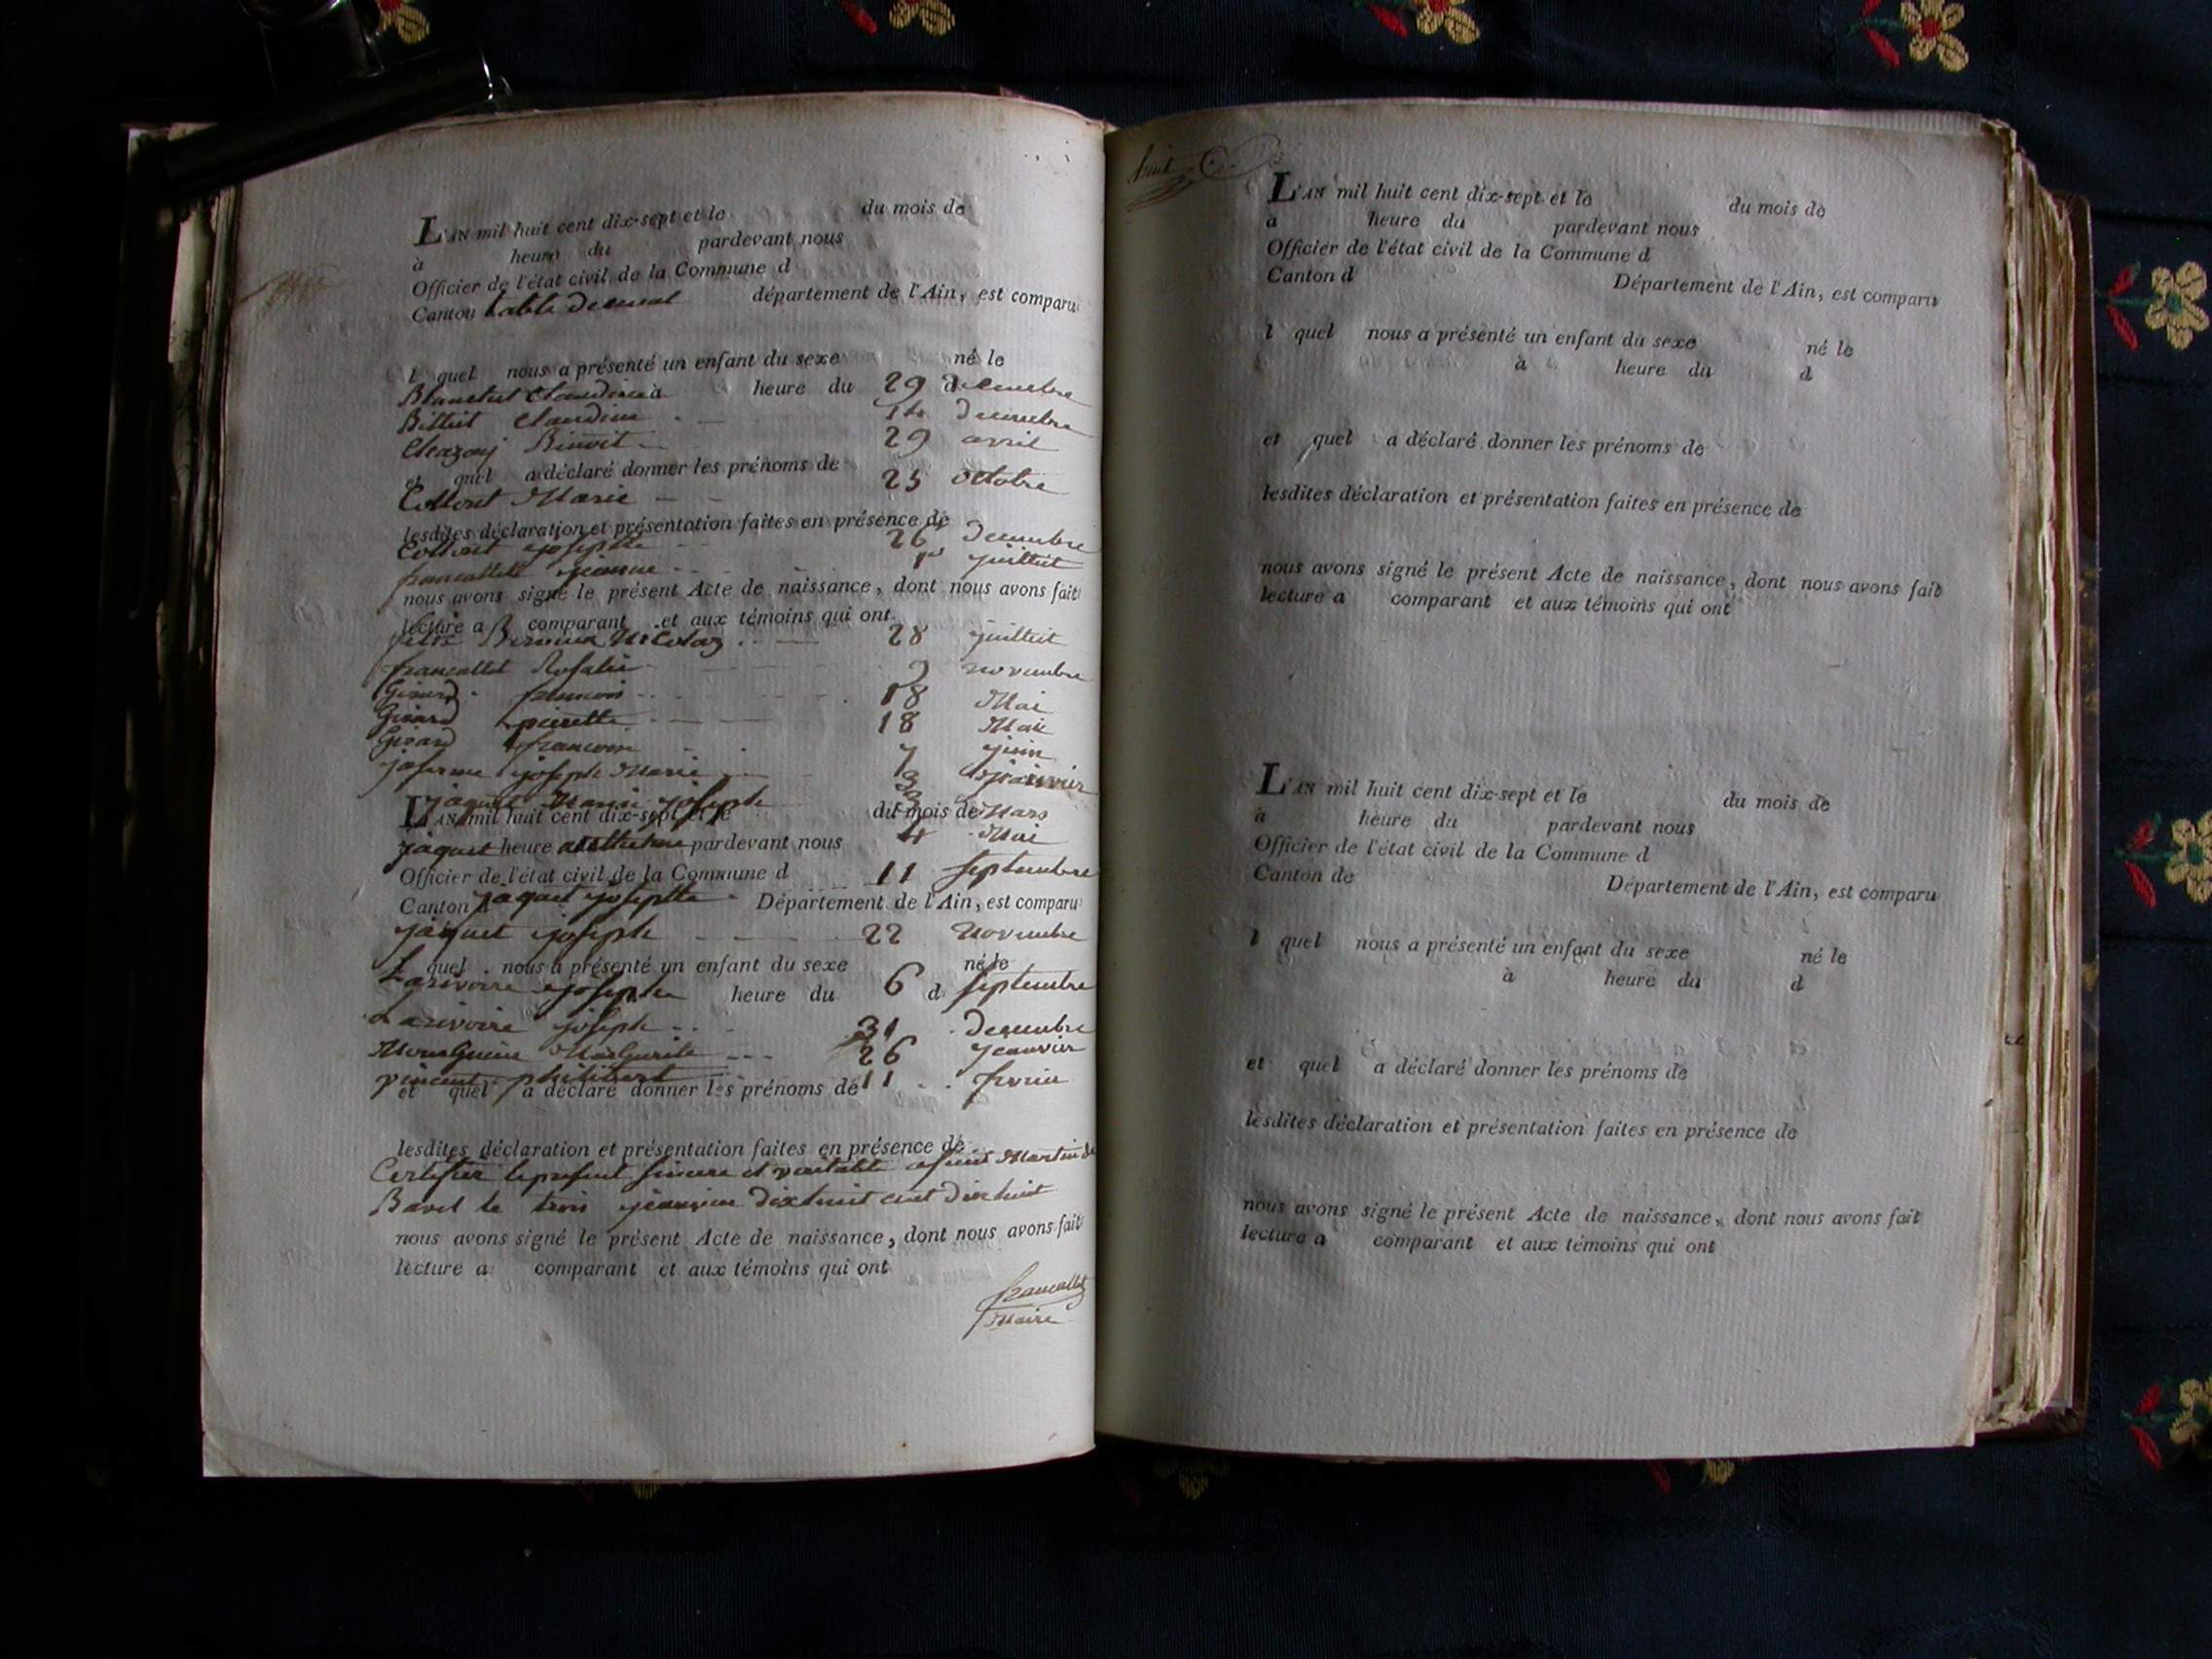 L'AN mil huit cent dix-sept et le du mois de
à heure du pardevant nous
Officier de l'état civil de la Commune d
Canton table département de l'Ain, est comparu
l quel nous a présenté un enfant du sexe né le
Claudine à heure du 29 decembre
Claudine 14 decembre
Benoit 29 avril
et quel a déclaré donner les prénoms de
Marie 25 octobre
lesdites déclaration et présentation faites en présence de
josephte 26 decembre
francallet jeanne 1er juillet
nous avons signé le présent Acte de naissance, dont nous avons fait
lecture a comparant et aux témoins qui ont
Nicolas 28 juillet
francallet Rosalie novembre
Girard francois 18 Mai
Girard pierrette 18 Mai
Girard francois 7 juin
joseph Marie 3 janvier
jaquet Marie joseph
L'AN mil huit cent dix-sept et le du mois de Mars
jaquet heure pardevant nous 4 Mai
Officier de l'état civil de la Commune d 11 septembre
Canton d jaquet josephte Département de l'Ain, est comparu
jaquet joseph 22 Novembre
l quel nous a présenté un enfant du sexe né le
Larivoire heure du 6 d septembre
Larivoire joseph 31 decembre
Marguerite 26 jeanvier
vincent philibert
et quel a déclaré donner les prénoms de 11 fevrier
lesdites déclaration et présentation faites en présence de
Certifier le présent sincere et veritable a saint Martin de
Bavel le trois jeanvier dixhuit cent dixhuit
nous avons signé le présent Acte de naissance, dont nous avons fait
lecture a comparant et aux témoins qui ont
francallet
Maire
huit
L'AN mil huit cent dix-sept et le du mois de
à heure du pardevant nous
Officier de l'état civil de la Commune d
Canton d Département de l'Ain, est comparu
l quel nous a présenté un enfant du sexe né le
à heure du d
et quel a déclaré donner les prénoms de
lesdites déclaration et présentation faites en présence de
nous avons signé le présent Acte de naissance, dont nous avons fait
lecture a comparant et aux témoins qui ont
L'AN mil huit cent dix-sept et le du mois de
à heure du pardevant nous
Officier de l'état civil de la Commune d
Canton de Département de l'Ain, est comparu
l quel nous a présenté un enfant du sexe né le
à heure du d
et quel a déclaré donner les prénoms de
lesdites déclaration et présentation faites en présence de
nous avons signé le présent Acte de naissance, dont nous avons fait
lecture a comparant et aux témoins qui ont